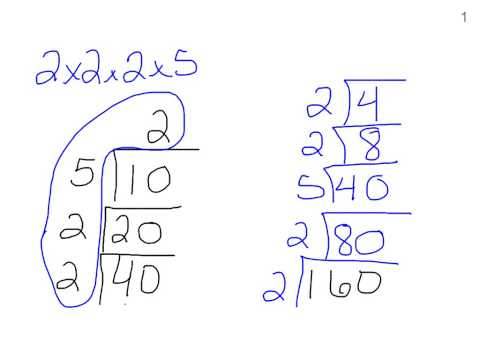 1
2×2×2×5
2
5 10
2 20
2 40
2 4
2 8
5 40
2 80
2 160